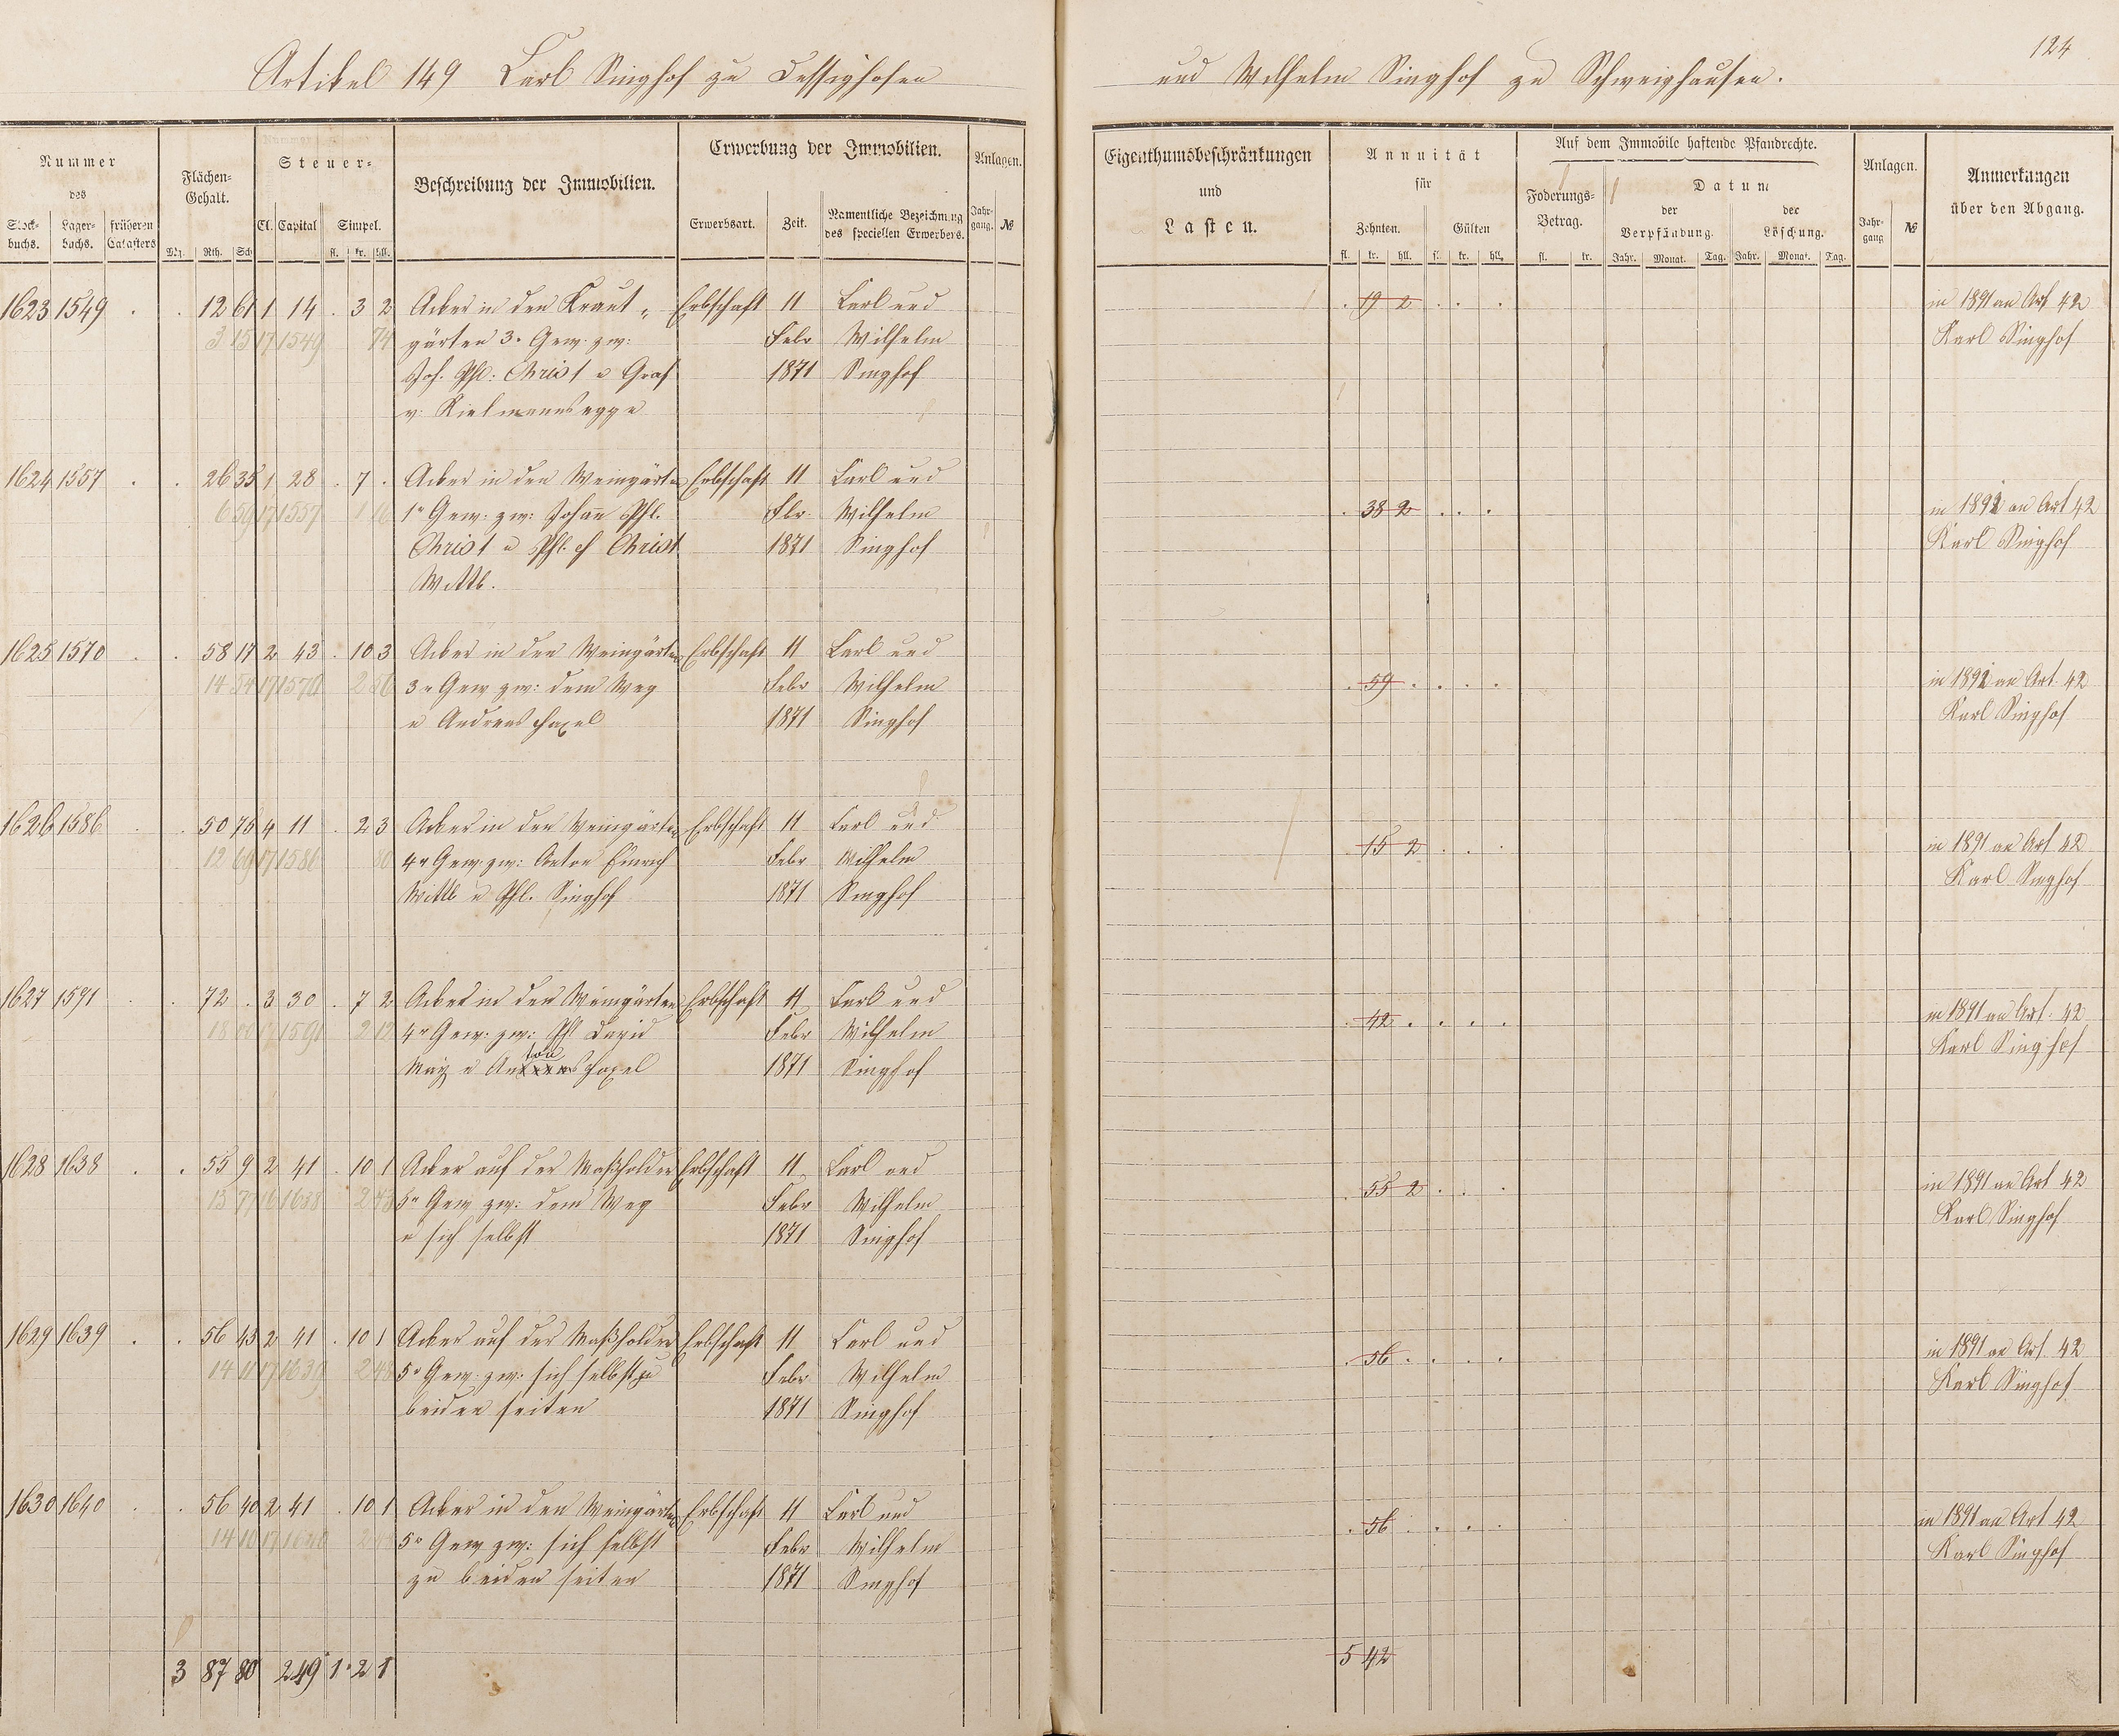 Artikel 149 Carl Singhof zu Dessighofen
und Wilhelm Singhof zu Schweighausen.
124
Nummer
des
Stock-buchs. Lager-buchs. früheren Catasters
Flächen-Gehalt.
Mg. Rth. Sch
Steuer-
Cl. Capital Simpel.
fl. kr. hll.
Beschreibung der Immobilien.
Erwerbung der Immobilien.
Erwerbsart. Zeit. Namentliche Bezeichnung des speciellen Erwerbers.
Anlagen.
Jahr-gang. №
Eigenthumsbeschränkungen
und
Lasten.
Annuität
für
Zehnten. Gülten
fl. kr. hll. fl. kr. hll.
Auf dem Immobile haftende Pfandrechte.
Foderungs-Betrag.
fl. kr.
Datum
der Verpfändung. der Löschung.
Jahr. Monat. Tag. Jahr. Monat. Tag.
Anlagen.
Jahr-gang №
Anmerkungen
über den Abgang.
1623 1549 . . 12 61 1 14 . 3 2 Acker in den Kraut „ Erbschaft 11 Carl und . 19 2 . . . in 1891 an Art 42
3 15 17 1549 74 gärten 3r Gew. zw: Febr Wilhelm Karl Singhof
Joh. Phl: Christ u Graf 1871 Singhof
v: Kielmannsegge
1624 1557 . . 26 35 1 28 . 7 . Acker in den Weingärten Erbschaft 11 Carl und
6 59 17 1557 1 16 1r Gew: zw: Johann Phl. Fbr. Wilhelm . 38 2 . . . in 1892 an Art 42
Christ u Phl. H Christ 1871 Singhof Karl Singhof
Wittb.
1625 1570 . . 58 17 2 43 . 10 3 Acker in den Weingärten Erbschaft 11 Carl und
14 54 17 1570 2 56 3r Gew zw: dem Weg Febr Wilhelm . 59 . . . . in 1892 an Art. 42
u Andreas Haxel 1871 Singhof Karl Singhof
1626 1586 . . 50 76 4 11 . 2 3 Acker in den Weingärten Erbschaft 11 Carl und
12 69 17 1586 80 4r Gew: zw: Anton Emrich Febr Wilhelm . 15 2 . . . in 1891 an Art 42
Wittb u Phl. Singhof 1871 Singhof Karl Singhof
1627 1591 . . 72 . 3 30 . 7 2 Acker in den Weingärten Erbschaft 11 Carl und
18 00 17 1591 2 12 4r Gew: zw: Phl David Febr Wilhelm . 42 . . . . in 1891 an Art. 42
May u Anton Haxel 1871 Singhof Karl Singhof
1628 1638 . . 55 9 2 41 . 10 1 Acker auf der Maßholder Erbschaft 11 Carl und
13 77 16 1638 2 43 5r Gew zw: dem Weg Febr Wilhelm . 55 2 . . . in 1891 an Art 42
u sich selbst 1871 Singhof Karl Singhof
1629 1639 . . 56 43 2 41 . 10 1 Acker auf der Maßholder Erbschaft 11 Carl und
14 11 17 1639 2 48 5r Gew. zw: sich selbst zu Febr Wilhelm . 56 . . . . in 1891 an Art. 42
beiden seiten 1871 Singhof Karl Singhof
1630 1640 . . 56 40 2 41 . 10 1 Acker in den Weingärten Erbschaft 11 Carl und
14 10 17 1640 2 48 5r Gew zw: sich selbst Febr Wilhelm . 56 . . . . in 1891 an Art 42
zu beiden seiten 1871 Singhof Karl Singhof
3 87 80 249 1 2 1 5 42